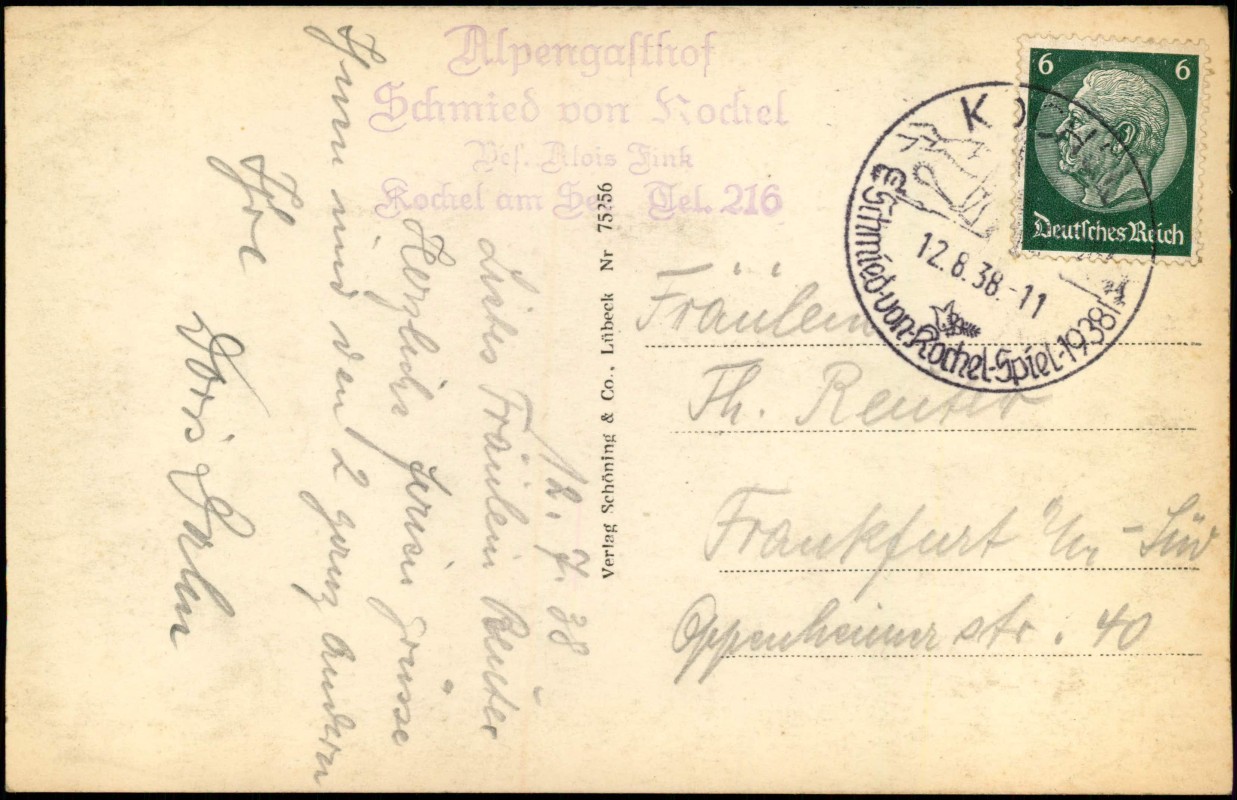 Alpengasthof
Schmied von Kochel
Bes. Alois Fink
Kochel am See Tel. 216
12. 7. 38
Liebes Fräulein Reuter
Herzliche feriengrüsse
Ihnen und den 2 ganz Andern
Ihre
Doris
Verlag Schöning & Co., Lübeck Nr 75256
6 6
Deutsches Reich
KOCHEL
12.8.38.-11
Schmied-von-Kochel-Spiel-1938
Fräulein
Th. Reuter
Frankfurt a/M - Süd
Oppenheimer str. 40